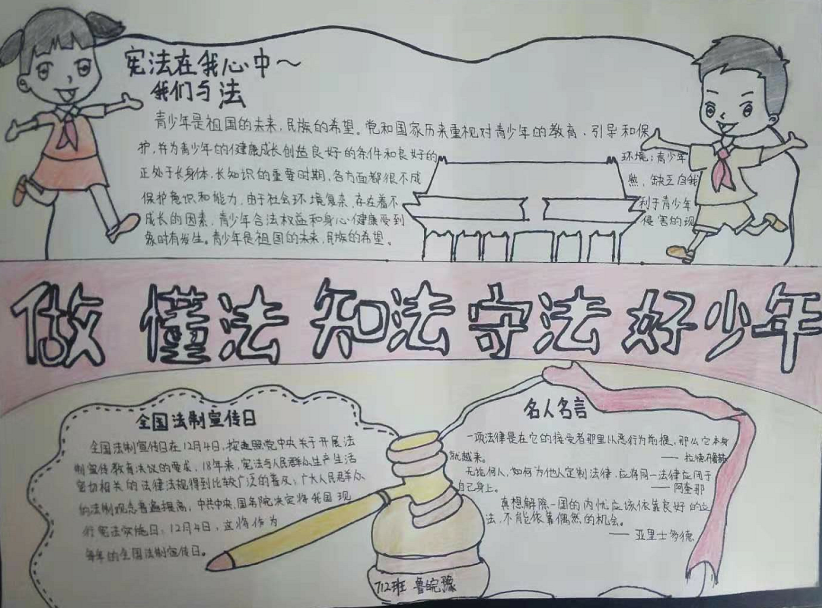 宪法在我心中~
我们与法
青少年是祖国的未来,民族的希望。党和国家历来重视对青少年的教育、引导和保
护,并为青少年的健康成长创造良好的条件和良好的环境;青少年
正处于长身体、长知识的重要时期,各方面都很不成熟、缺乏自我
保护意识和能力,由于社会环境复杂,存在着不利于青少年
成长的因素,青少年合法权益和身心健康受到侵害的现
象时有发生。青少年是祖国的未来,民族的希望。
做懂法知法守法好少年
全国法制宣传日
全国法制宣传日在12月4日,按照党中央关于开展法
制宣传教育决议的要求,18年来,宪法与人民群众生产生活
密切相关的法律法规得到比较广泛的普及,广大人民群众
的法制观念普遍提高,中共中央、国务院决定将我国现
行宪法实施日,12月4日,定为
每年的全国法制宣传日。
名人名言
一项法律是在它的接受者那里以恶行为前提,那么它本身
就越来。
无论何人,如何为他人定制法律,应将同一法律应用于
自己身上。
——阿奎那
真想解除一国的内忧应该依靠良好的立
法,不能依靠偶然的机会。
——亚里士多德
712班